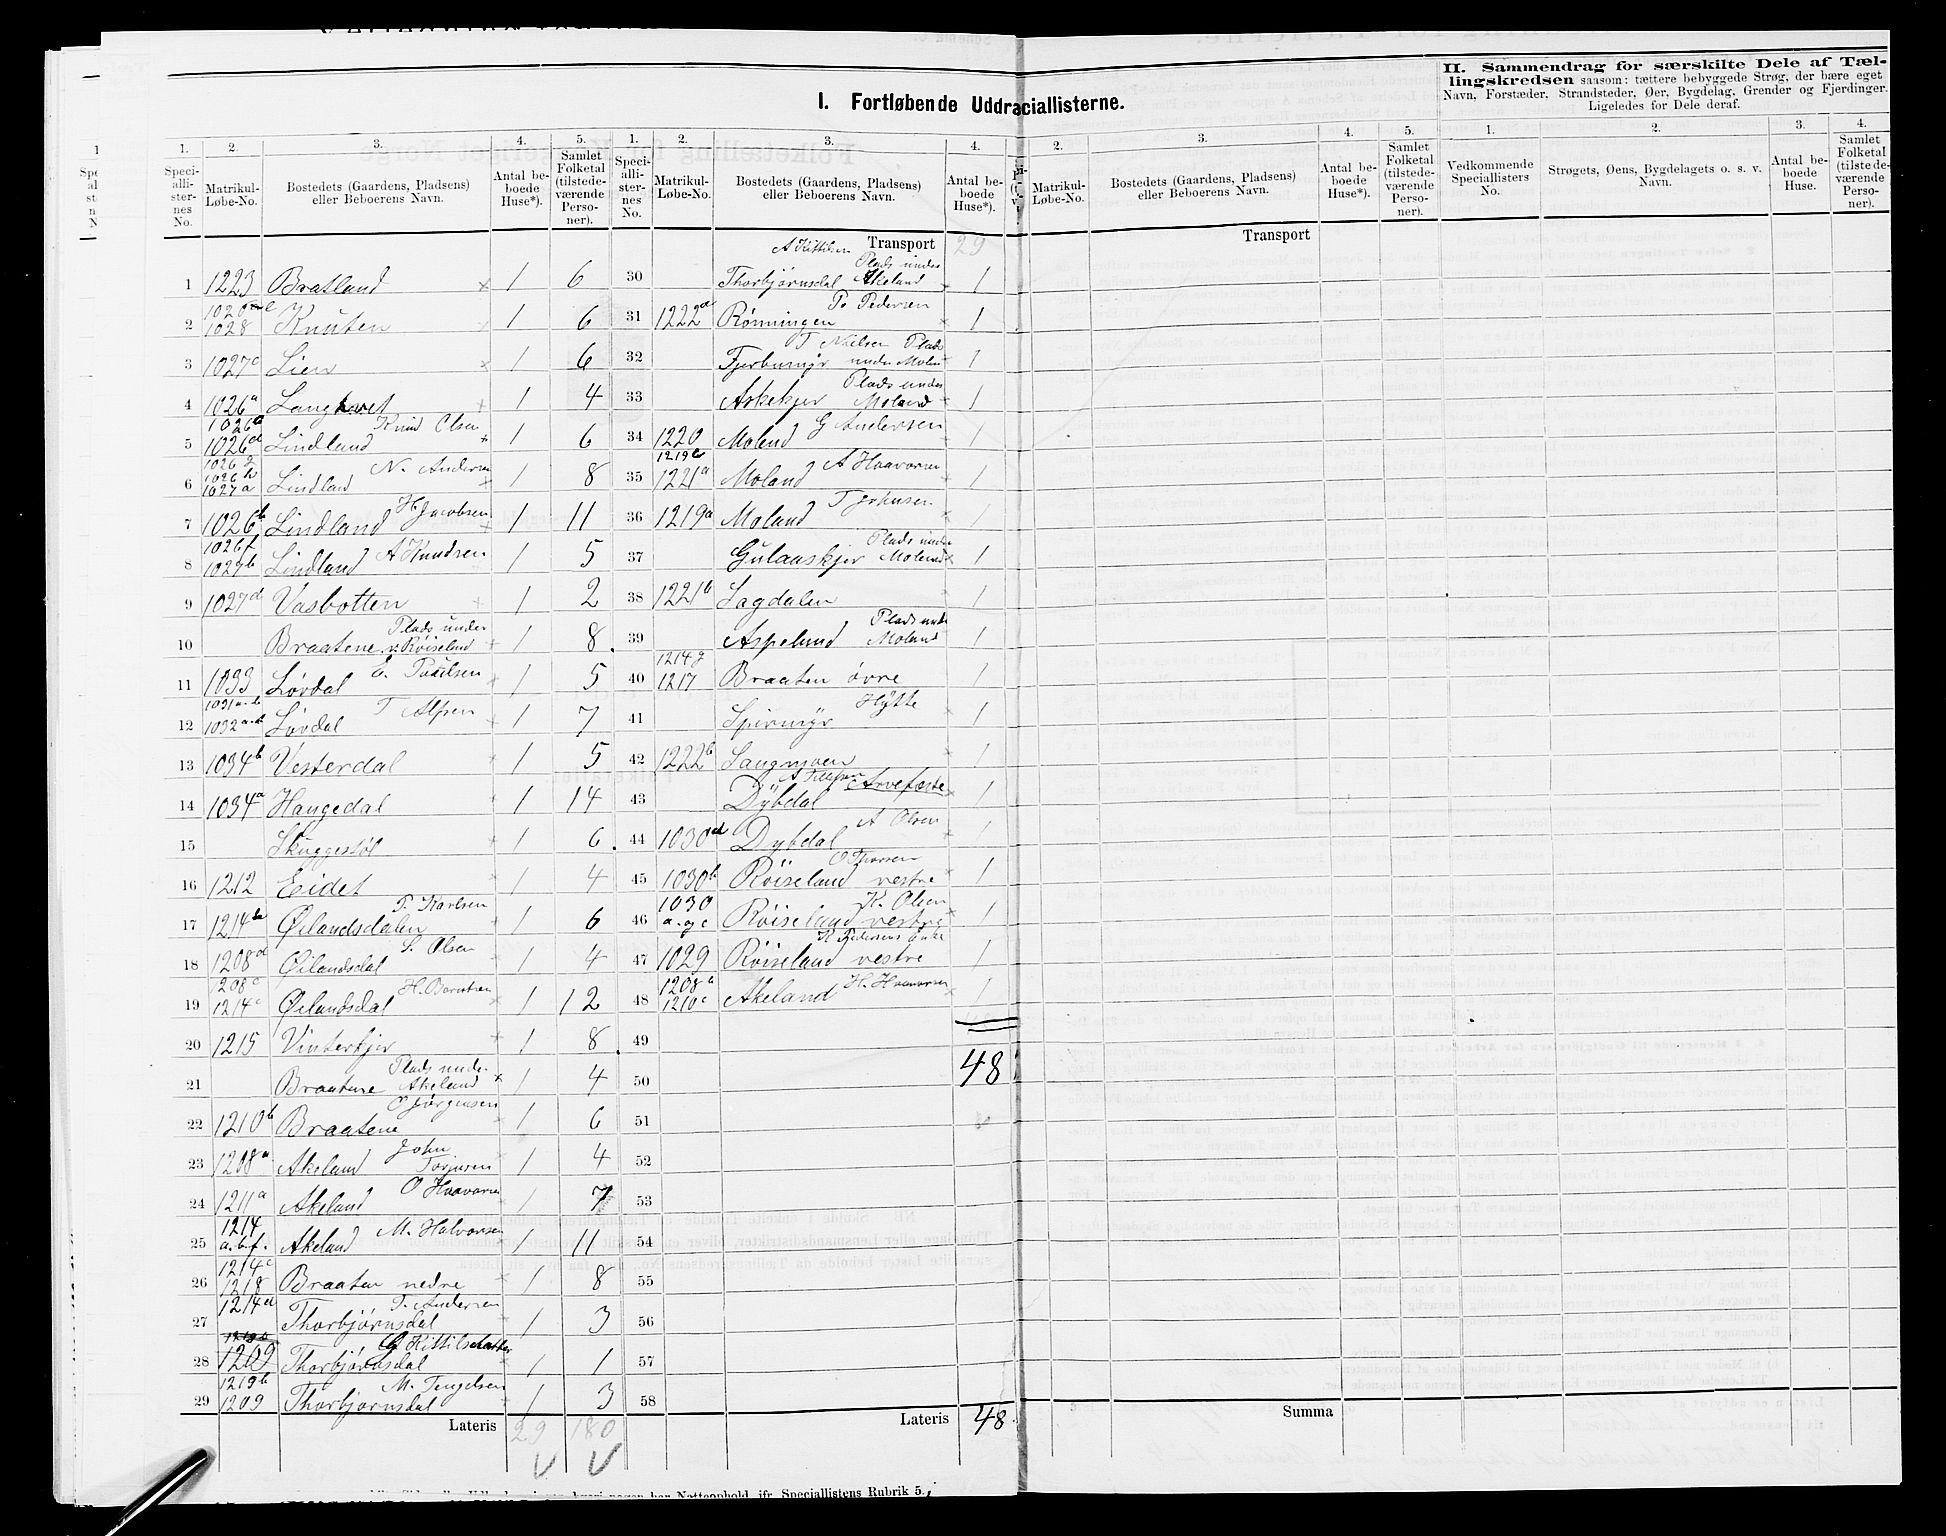 I. Fortløbende Uddraciallisterne.
II. Sammendrag for særskilte Dele af Tæl-
lingskredsen saasom: tættere bebyggede Strøg, der bære eget
Navn, Forstæder, Strandsteder, Øer, Bygdelag, Grender og Fjerdinger.
Ligeledes for Dele deraf.
1. 2. 3. 4. 5. 1. 2. 3. 4. 2. 3. 4. 5. 1. 2. 3. 4.
Speci-alli-ster-nes No. Matrikul-Løbe-No. Bostedets (Gaardens, Pladsens) eller Beboerens Navn. Antal be-boede Huse*). Samlet Folketal (tilstede-værende Perso-ner).
Speci-alli-ster-nes No. Matrikul-Løbe-No. Bostedets (Gaardens, Pladsens) eller Beboerens Navn. Antal be-boede Huse*).
Matrikul-Løbe-No. Bostedets (Gaardens, Pladsens) eller Beboerens Navn. Antal be-boede Huse*). Samlet Folketal (tilstede-værende Perso-ner).
Vedkommende Speciallisters No. Strøgets, Øens, Bygdelagets o. s. v. Navn. Antal be-boede Huse. Samlet Folketal (tilstede-værende Perso-ner).
1 1223 Bratland 1 6
2 1028 Knuten 1 6
3 1027c Lien 1 6
4 1026a 1 4
5 1026d Lindland Knud Olsen 1 6
6 1026g 1026h 1027a Lindland N. Andersen 1 8
7 1026b Lindland H. Jacobsen 1 11
8 1026f 1027b Lindland A Knudsen 1 5
9 1027d Vasbotten 1 2
10 Braatene Plads under v. Røiseland 1 8
11 1033 Løvdal E. Paulsen 1 5
12 1031a.b 1032a.b Løvdal T Alfsen 1 7
13 1034b Vesterdal 1 5
14 1034a Haugedal 1 14
15 Skuggestøl 1 6
16 1212 Eidet 1 4
17 1214 Øilandsdalen T. Karlsen 1 6
18 1208d Øilandsdal S. Olsen 1 4
19 1208c 1214c Øilandsdal H. Berntsen 1 12
20 1215 Vinterkjer 1 8
21 Braatene Plads under Akeland 1 4
22 1210b Braatene O Jørgensen 1 6
23 1208a Akeland John Torjusen 1 4
24 1211a Akeland O Haavorsen 1 7
25 1214 a.b.f. Akeland M. Halvorsen 1 11
26 1214c 1218 Braaten nedre 1 8
27 1214d Thorbjørnsdal T. Andersen 1 3
28 1209 Thorbjørnsdal G Kittilsdatter 1 1
29 1219b 1209 Thorbjørnsdal M. Tengelsen 1 3
Lateris 29 180
Transport 29
30 Thorbjørnsdal A Kittilsen Plads under Akeland 1
31 1222a Rønningen P. Pedersen 1
32 Fjerbumyr T Nielsen Plads under Moland 1
33 Askekjer Plads under Moland 1
34 1220 Moland G Andersen 1
35 1219b 1221a Moland A Haavorsen 1
36 1219a Moland T Johnsen 1
37 Gulaaskjer Plads under Moland 1
38 1221b Sagdalen 1
39 Aspelund Plads under Moland 1
40 1214g 1217 Braaten øvre 1
41 Spirmyr Hytte 1
42 1222b Langmoen 1
43 Dybdal Arvefæste 1
44 1030d Dybdal A Olsen 1
45 1030b Røiseland vestre O Thorsen 1
46 1030 a.og c Røiseland vestre K. Olsen 1
47 1029 Røiseland vestre K Pedersens Enke 1
48 1208b 1210c Akeland H. Haavorsen 1
49
50 48
51
52
53
54
55
56
57
58
Lateris 48
Transport
Summa
Nattophold, jfr. Speciallistens Rubrik 5.